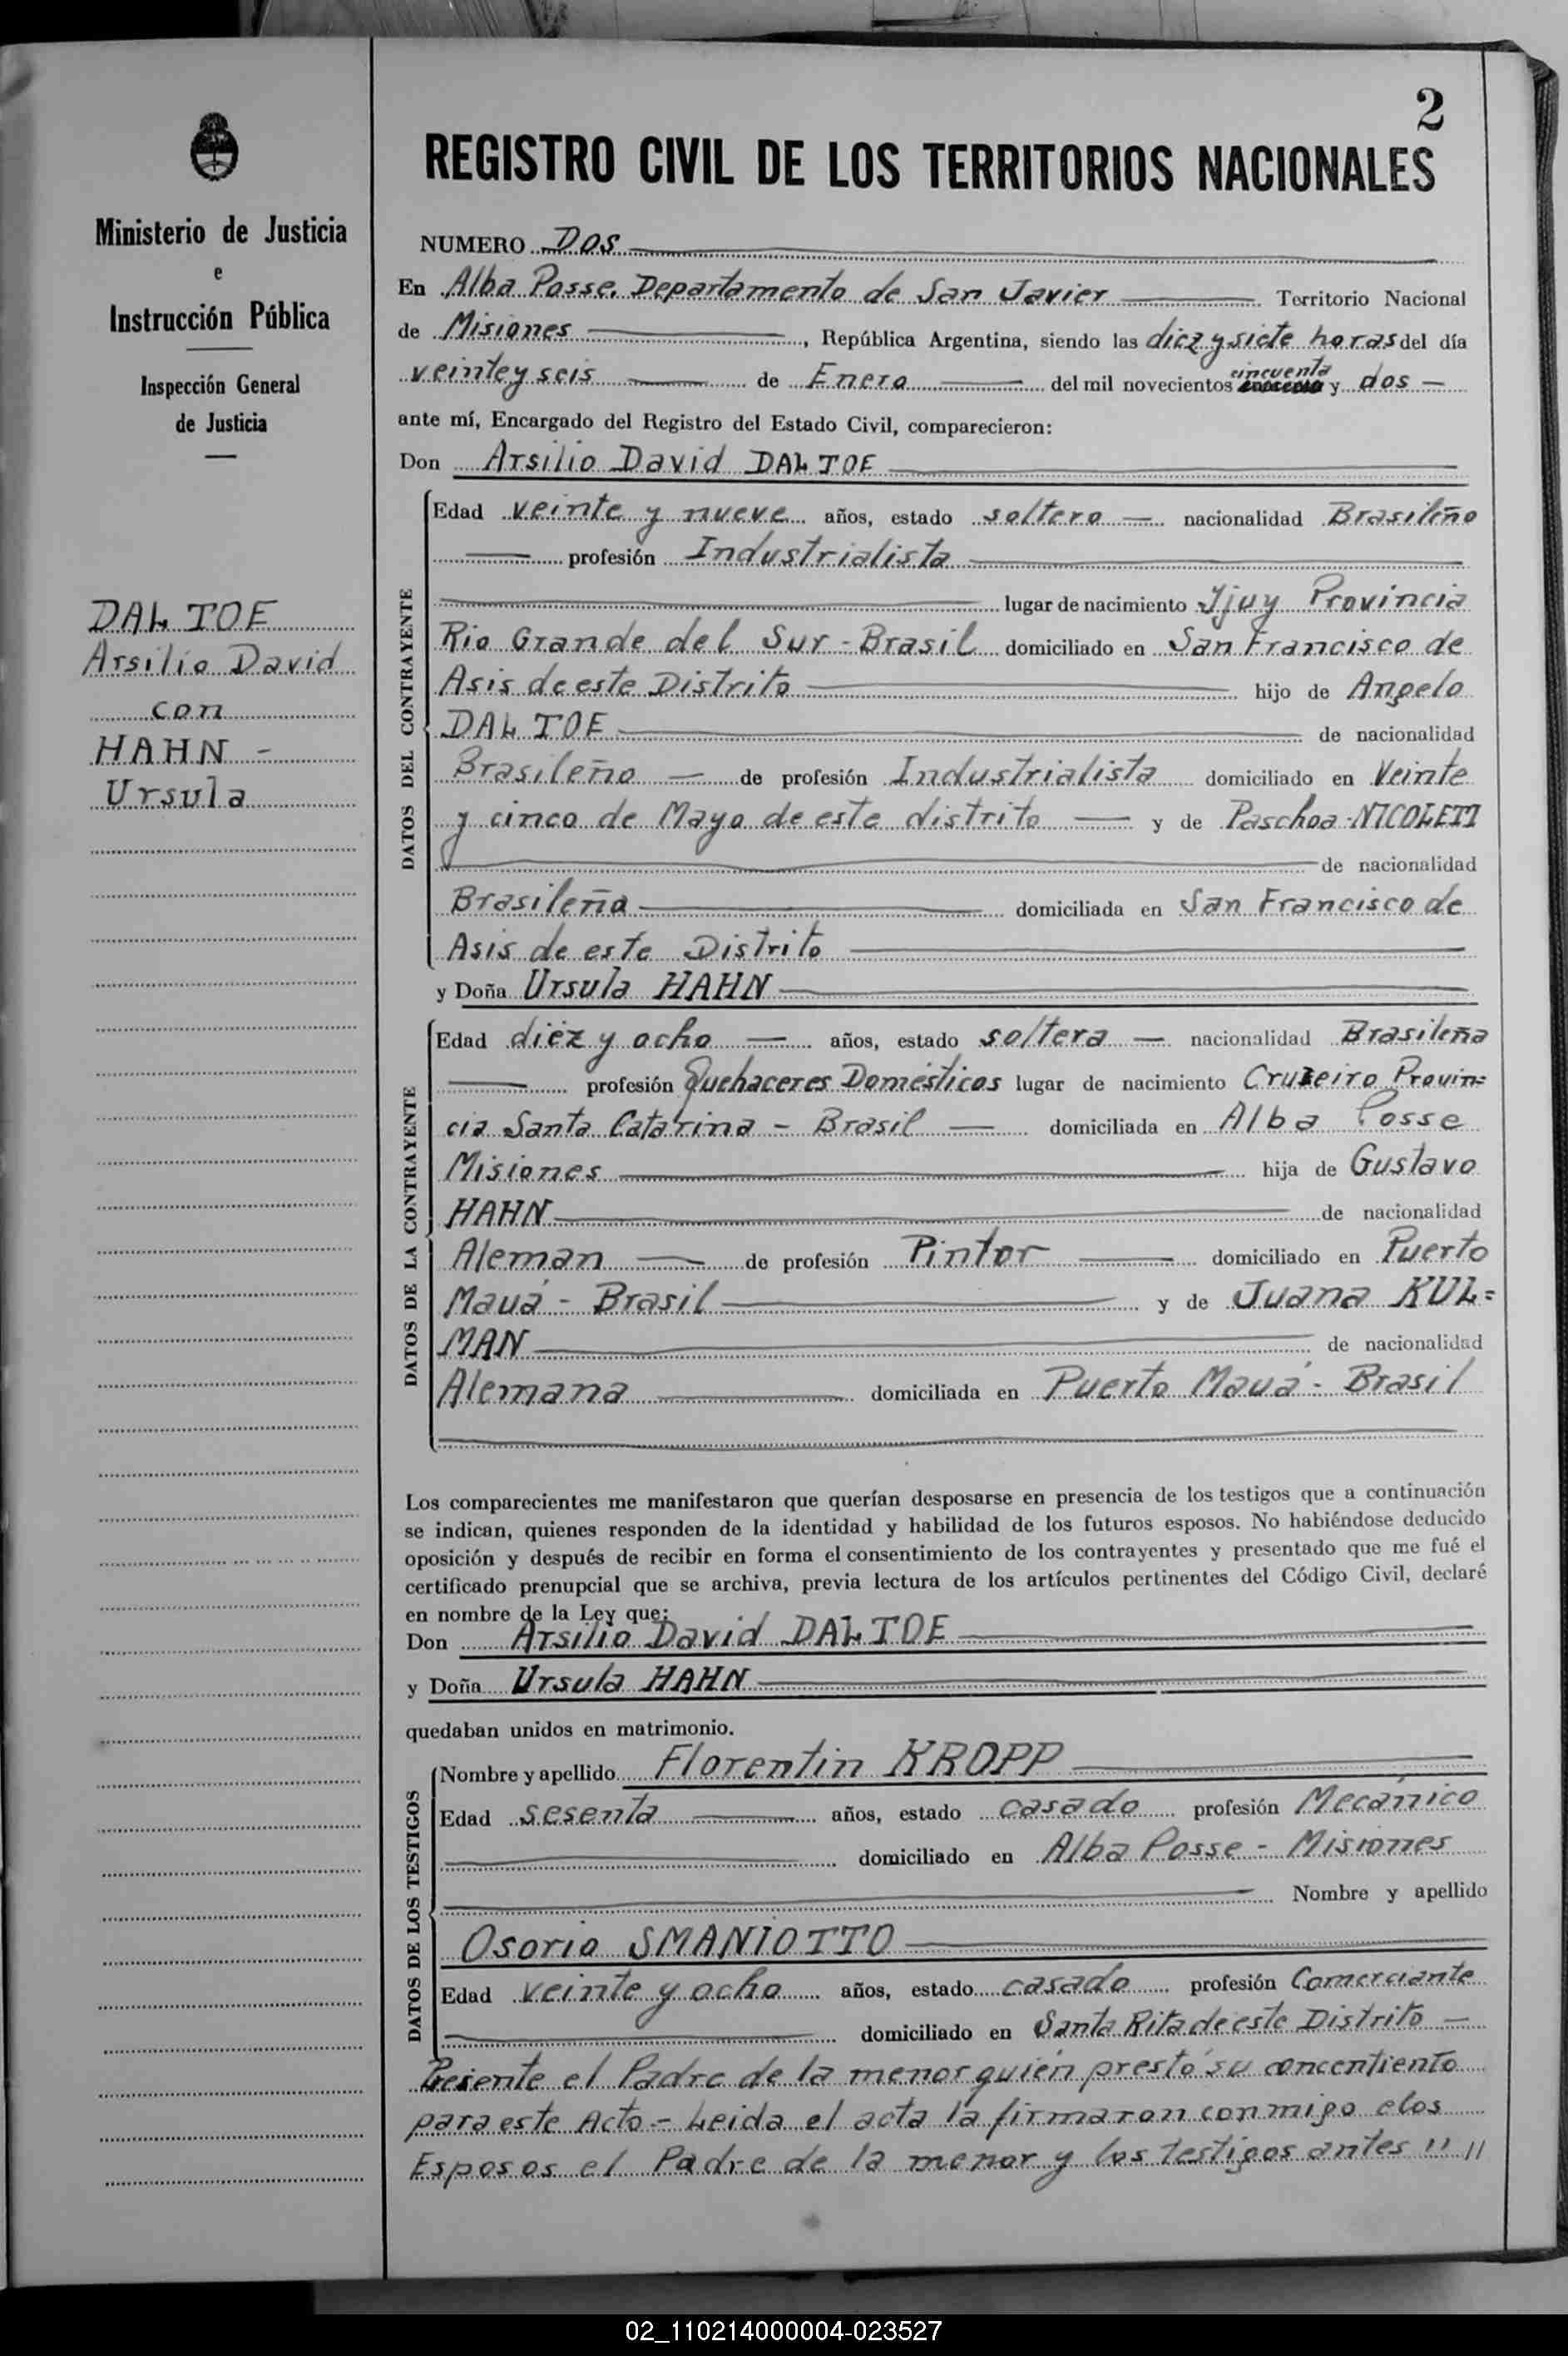 2
REGISTRO CIVIL DE LOS TERRITORIOS NACIONALES
Ministerio de Justicia
e
Instrucción Pública
Inspección General
de Justicia
DAL TOE
Arsilio David
con
HAHN -
Ursula
NUMERO Dos
En Alba Posse, Departamento de San Javier Territorio Nacional
de Misiones, República Argentina, siendo las diez y siete horas del día
veinte y seis de Enero del mil novecientos cincuenta y dos —
ante mí, Encargado del Registro del Estado Civil, comparecieron:
Don Arsilio David DAL TOE
DATOS DEL CONTRAYENTE
Edad veinte y nueve años, estado soltero — nacionalidad Brasileño
profesión Industrialista
lugar de nacimiento Yjuy Provincia
Rio Grande del Sur - Brasil domiciliado en San Francisco de
Asis de este Distrito hijo de Angelo
DAL TOE de nacionalidad
Brasileño — de profesión Industrialista domiciliado en Veinte
y cinco de Mayo de este distrito — y de Paschoa NICOLETI
de nacionalidad
Brasileña domiciliada en San Francisco de
Asis de este Distrito
y Doña Ursula HAHN
DATOS DE LA CONTRAYENTE
Edad diez y ocho — años, estado soltera — nacionalidad Brasileña
profesión Quehaceres Domésticos lugar de nacimiento Cruzeiro Provin=
cia Santa Catarina - Brasil — domiciliada en Alba Posse
Misiones hija de Gustavo
HAHN de nacionalidad
Aleman — de profesión Pintor domiciliado en Puerto
Mauá - Brasil y de Juana KUL=
MAN de nacionalidad
Alemana domiciliada en Puerto Mauá - Brasil
Los comparecientes me manifestaron que querían desposarse en presencia de los testigos que a continuación
se indican, quienes responden de la identidad y habilidad de los futuros esposos. No habiéndose deducido
oposición y después de recibir en forma el consentimiento de los contrayentes y presentado que me fué el
certificado prenupcial que se archiva, previa lectura de los artículos pertinentes del Código Civil, declaré
en nombre de la Ley que:
Don Arsilio David DAL TOE
y Doña Ursula HAHN
quedaban unidos en matrimonio.
DATOS DE LOS TESTIGOS
Nombre y apellido Florentin KROPP
Edad sesenta años, estado casado profesión Mecánico
domiciliado en Alba Posse - Misiones
Nombre y apellido
Osorio SMANIOTTO
Edad veinte y ocho años, estado casado profesión Comerciante
domiciliado en Santa Rita de este Distrito —
Presente el Padre de la menor quién prestó su concentiento
para este Acto - Leida el acta la firmaron conmigo elos
Esposos el Padre de la menor y los testigos antes " "
02_110214000004-023527